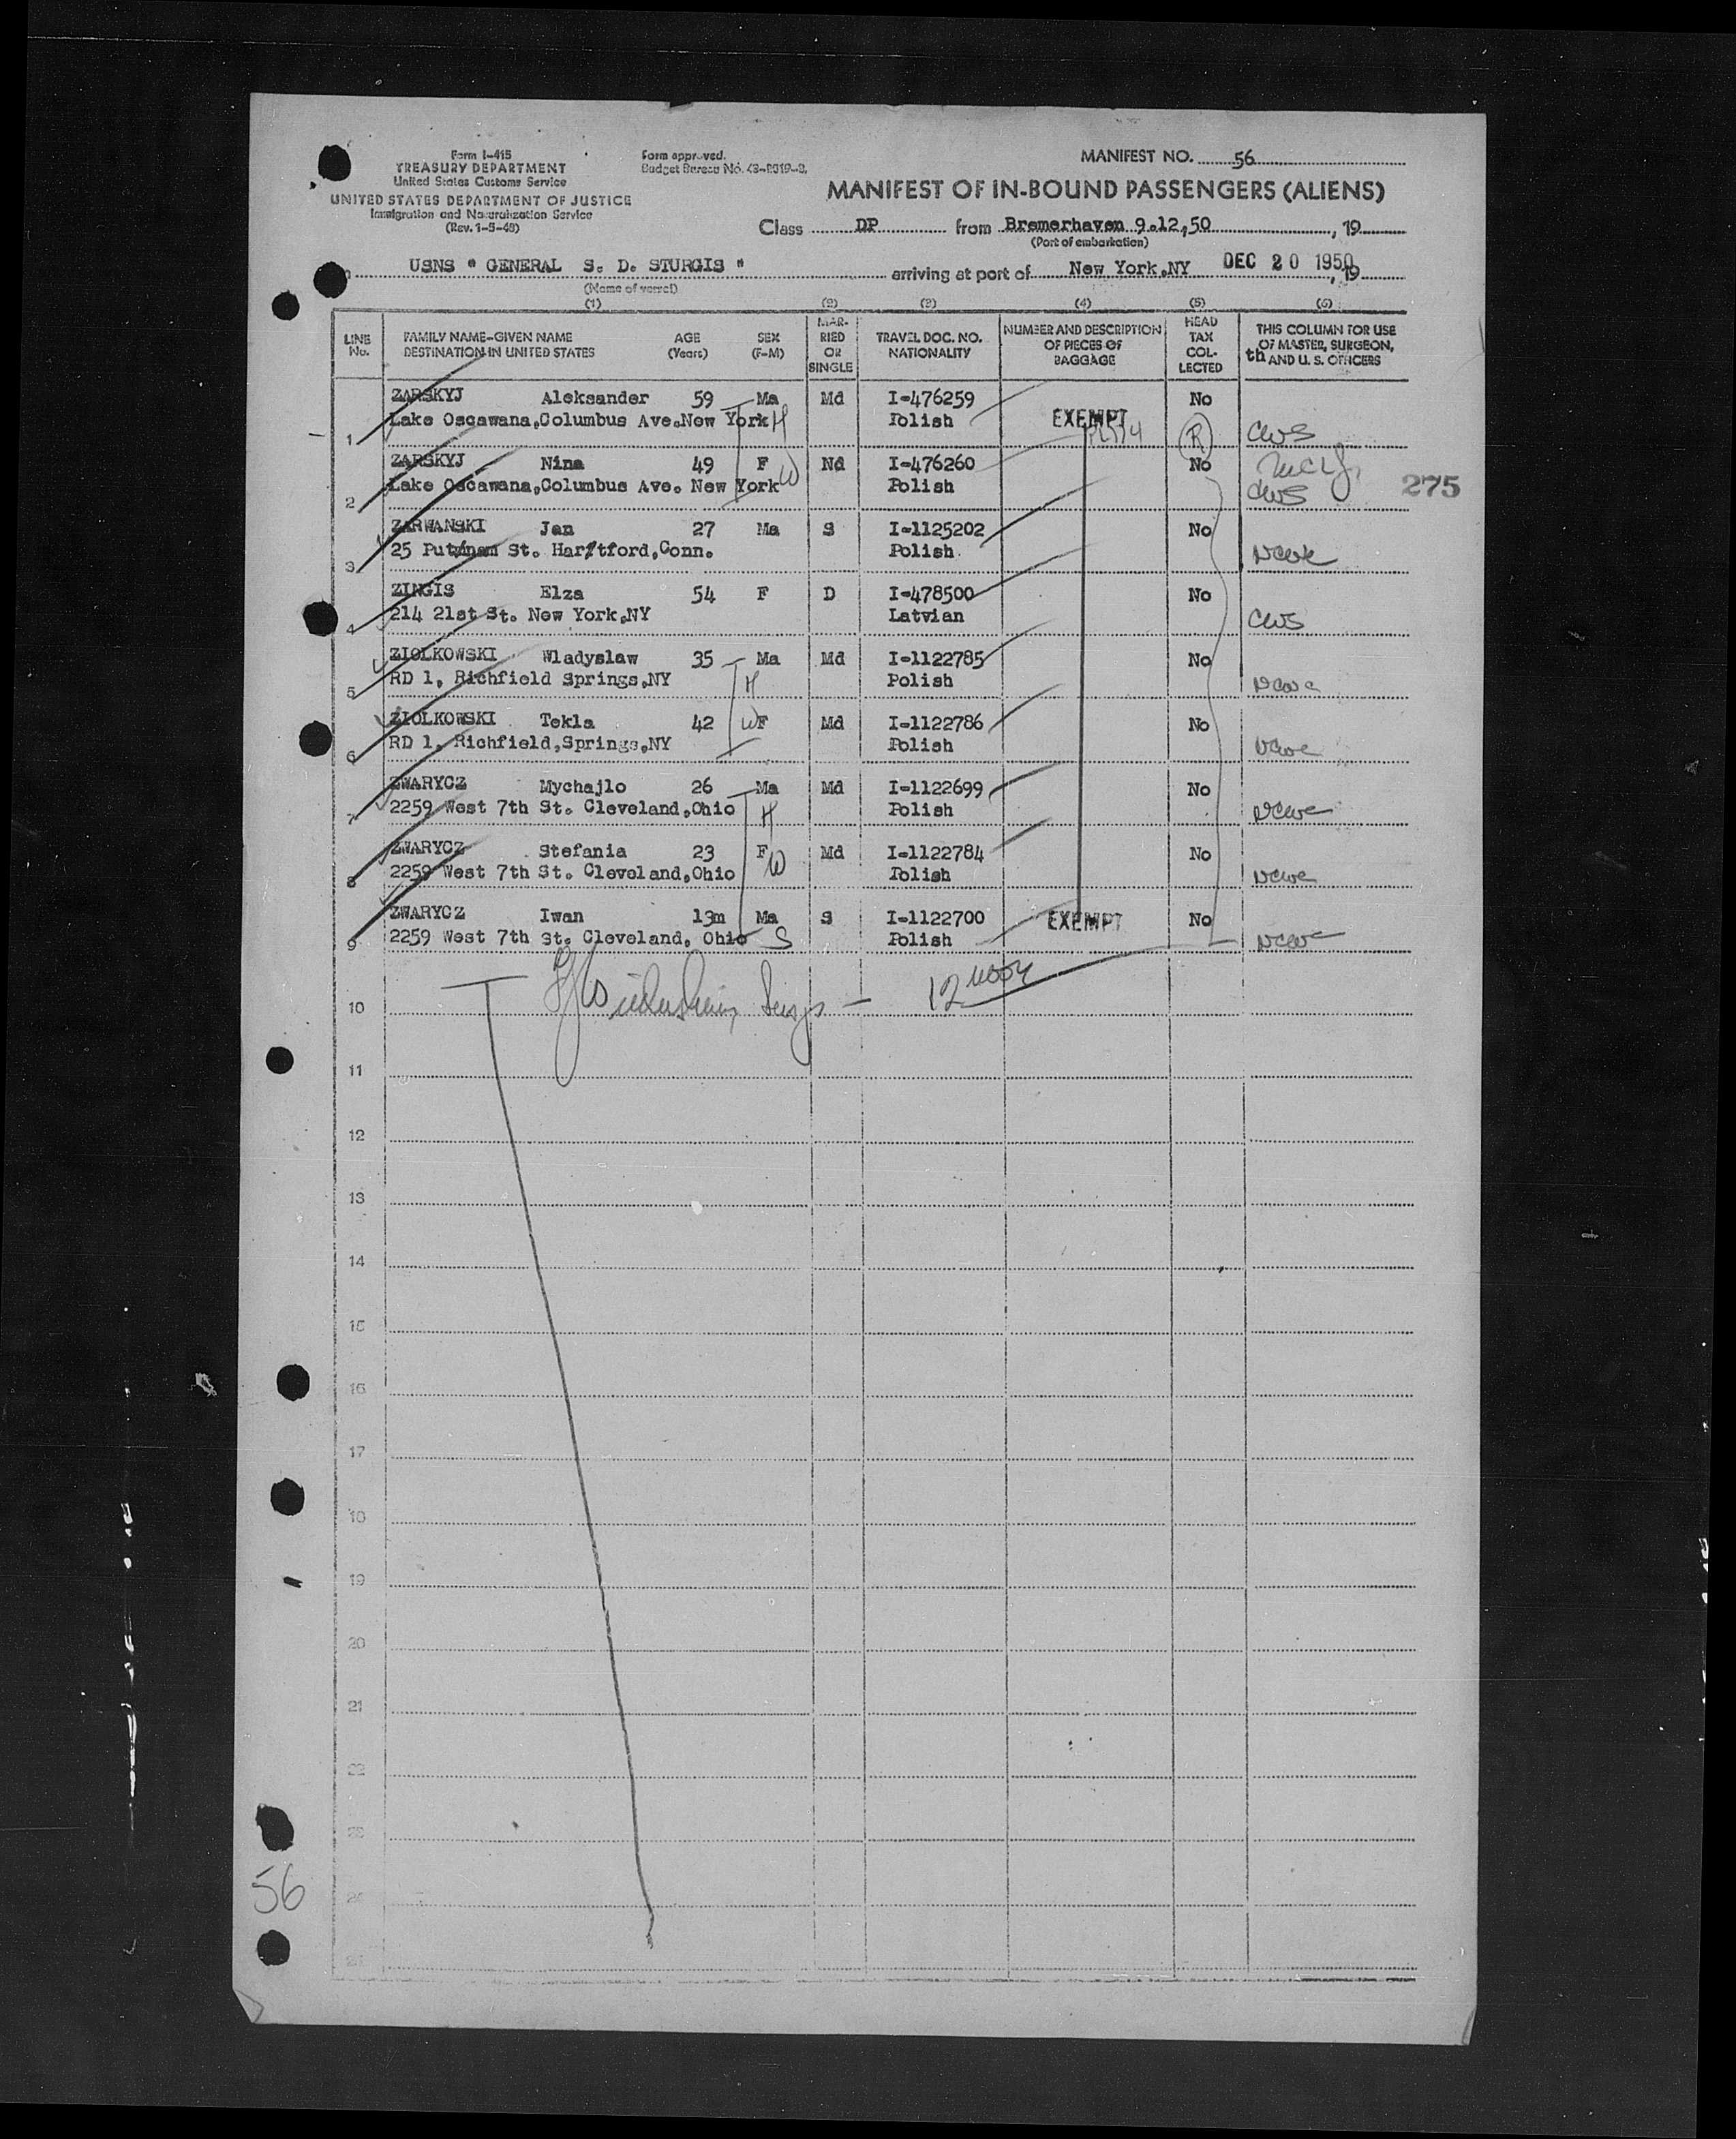 Form I-415
TREASURY DEPARTMENT
United States Customs Service
UNITED STATES DEPARTMENT OF JUSTICE
Immigration and Naturalization Service
(Rev. 1-5-48)
Form approved.
Budget Bureau No. 43-R019-3.
MANIFEST NO. 56
MANIFEST OF IN-BOUND PASSENGERS (ALIENS)
Class DP from Bremerhaven 9.12,50, 19
(Port of embarkation)
USNS " GENERAL S. D. STURGIS " arriving at port of New York,NY DEC 20 1950, 19
(Name of vessel)
(1) (2) (3) (4) (5) (6)
LINE No.
FAMILY NAME-GIVEN NAME
DESTINATION IN UNITED STATES
AGE (Years)
SEX (F-M)
MAR-RIED OR SINGLE
TRAVEL DOC. NO.
NATIONALITY
NUMBER AND DESCRIPTION OF PIECES OF BAGGAGE
HEAD TAX COL-LECTED
THIS COLUMN FOR USE OF MASTER, SURGEON, th AND U. S. OFFICERS
ZARSKYJ Aleksander 59 Ma Md I-476259 No
1 Lake Oscawana,Columbus Ave.New York H Polish EXEMPT R CWS
ZARSKYJ Nina 49 F Nd I-476260 No
2 Lake Oscawana,Columbus Ave. New York W Polish CWS 275
ZARWANSKI Jan 27 Ma S I-1125202 No
3 25 Putnam St. Hartford,Conn. Polish NCWC
ZINGIS Elza 54 F D I-478500 No
4 214 21st St. New York,NY Latvian CWS
ZIOLKOWSKI Wladyslaw 35 Ma Md I-1122785 No
5 RD 1, Richfield Springs,NY H Polish NCWC
ZIOLKOWSKI Tekla 42 W F Md I-1122786 No
6 RD 1, Richfield,Springs,NY Polish NCWC
ZWARYCZ Mychajlo 26 Ma Md I-1122699 No
7 2259 West 7th St. Cleveland,Ohio H Polish NCWC
ZWARYCZ Stefania 23 F W Md I-1122784 No
8 2259 West 7th St. Cleveland,Ohio Polish NCWC
ZWARYCZ Iwan 13m Ma S I-1122700 EXEMPT No
9 2259 West 7th St. Cleveland, Ohio S Polish NCWC
12 noon
10
11
12
13
14
15
16
17
18
19
20
21
22
23
24
25
56